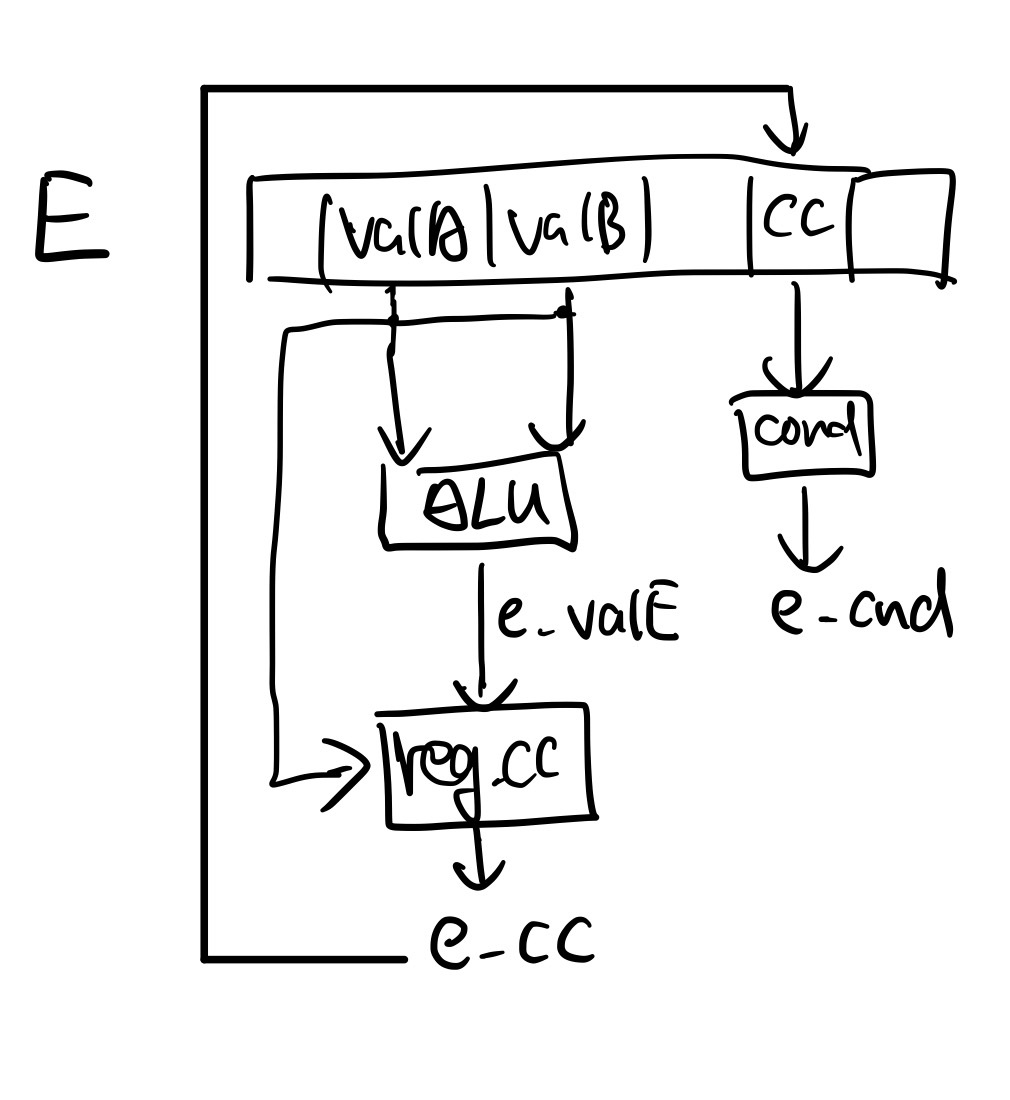 E
valA valB CC
cond
ALU
e_valE
e_cnd
reg_CC
e_CC